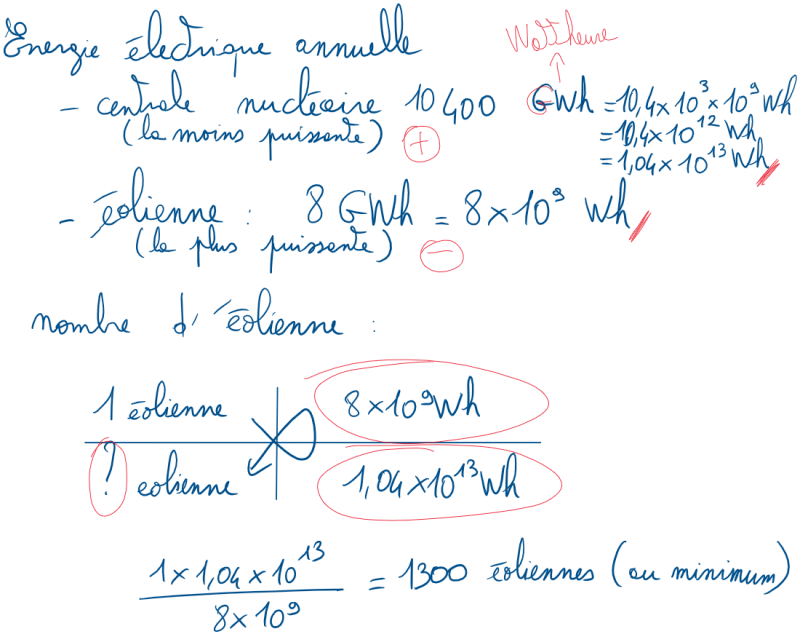 Energie électrique annuelle
Watt heure
- centrale nucléaire 10 400 GWh = 10,4 x 10³ x 10⁹ Wh
(la moins puissante) + = 10,4 x 10¹² Wh
= 1,04 x 10¹³ Wh
- éolienne : 8 GWh = 8 x 10⁹ Wh
(la plus puissante) -
nombre d'éolienne :
1 éolienne 8 x 10⁹ Wh
? eolienne 1,04 x 10¹³ Wh
1 x 1,04 x 10¹³
= 1300 éoliennes (au minimum)
8 x 10⁹